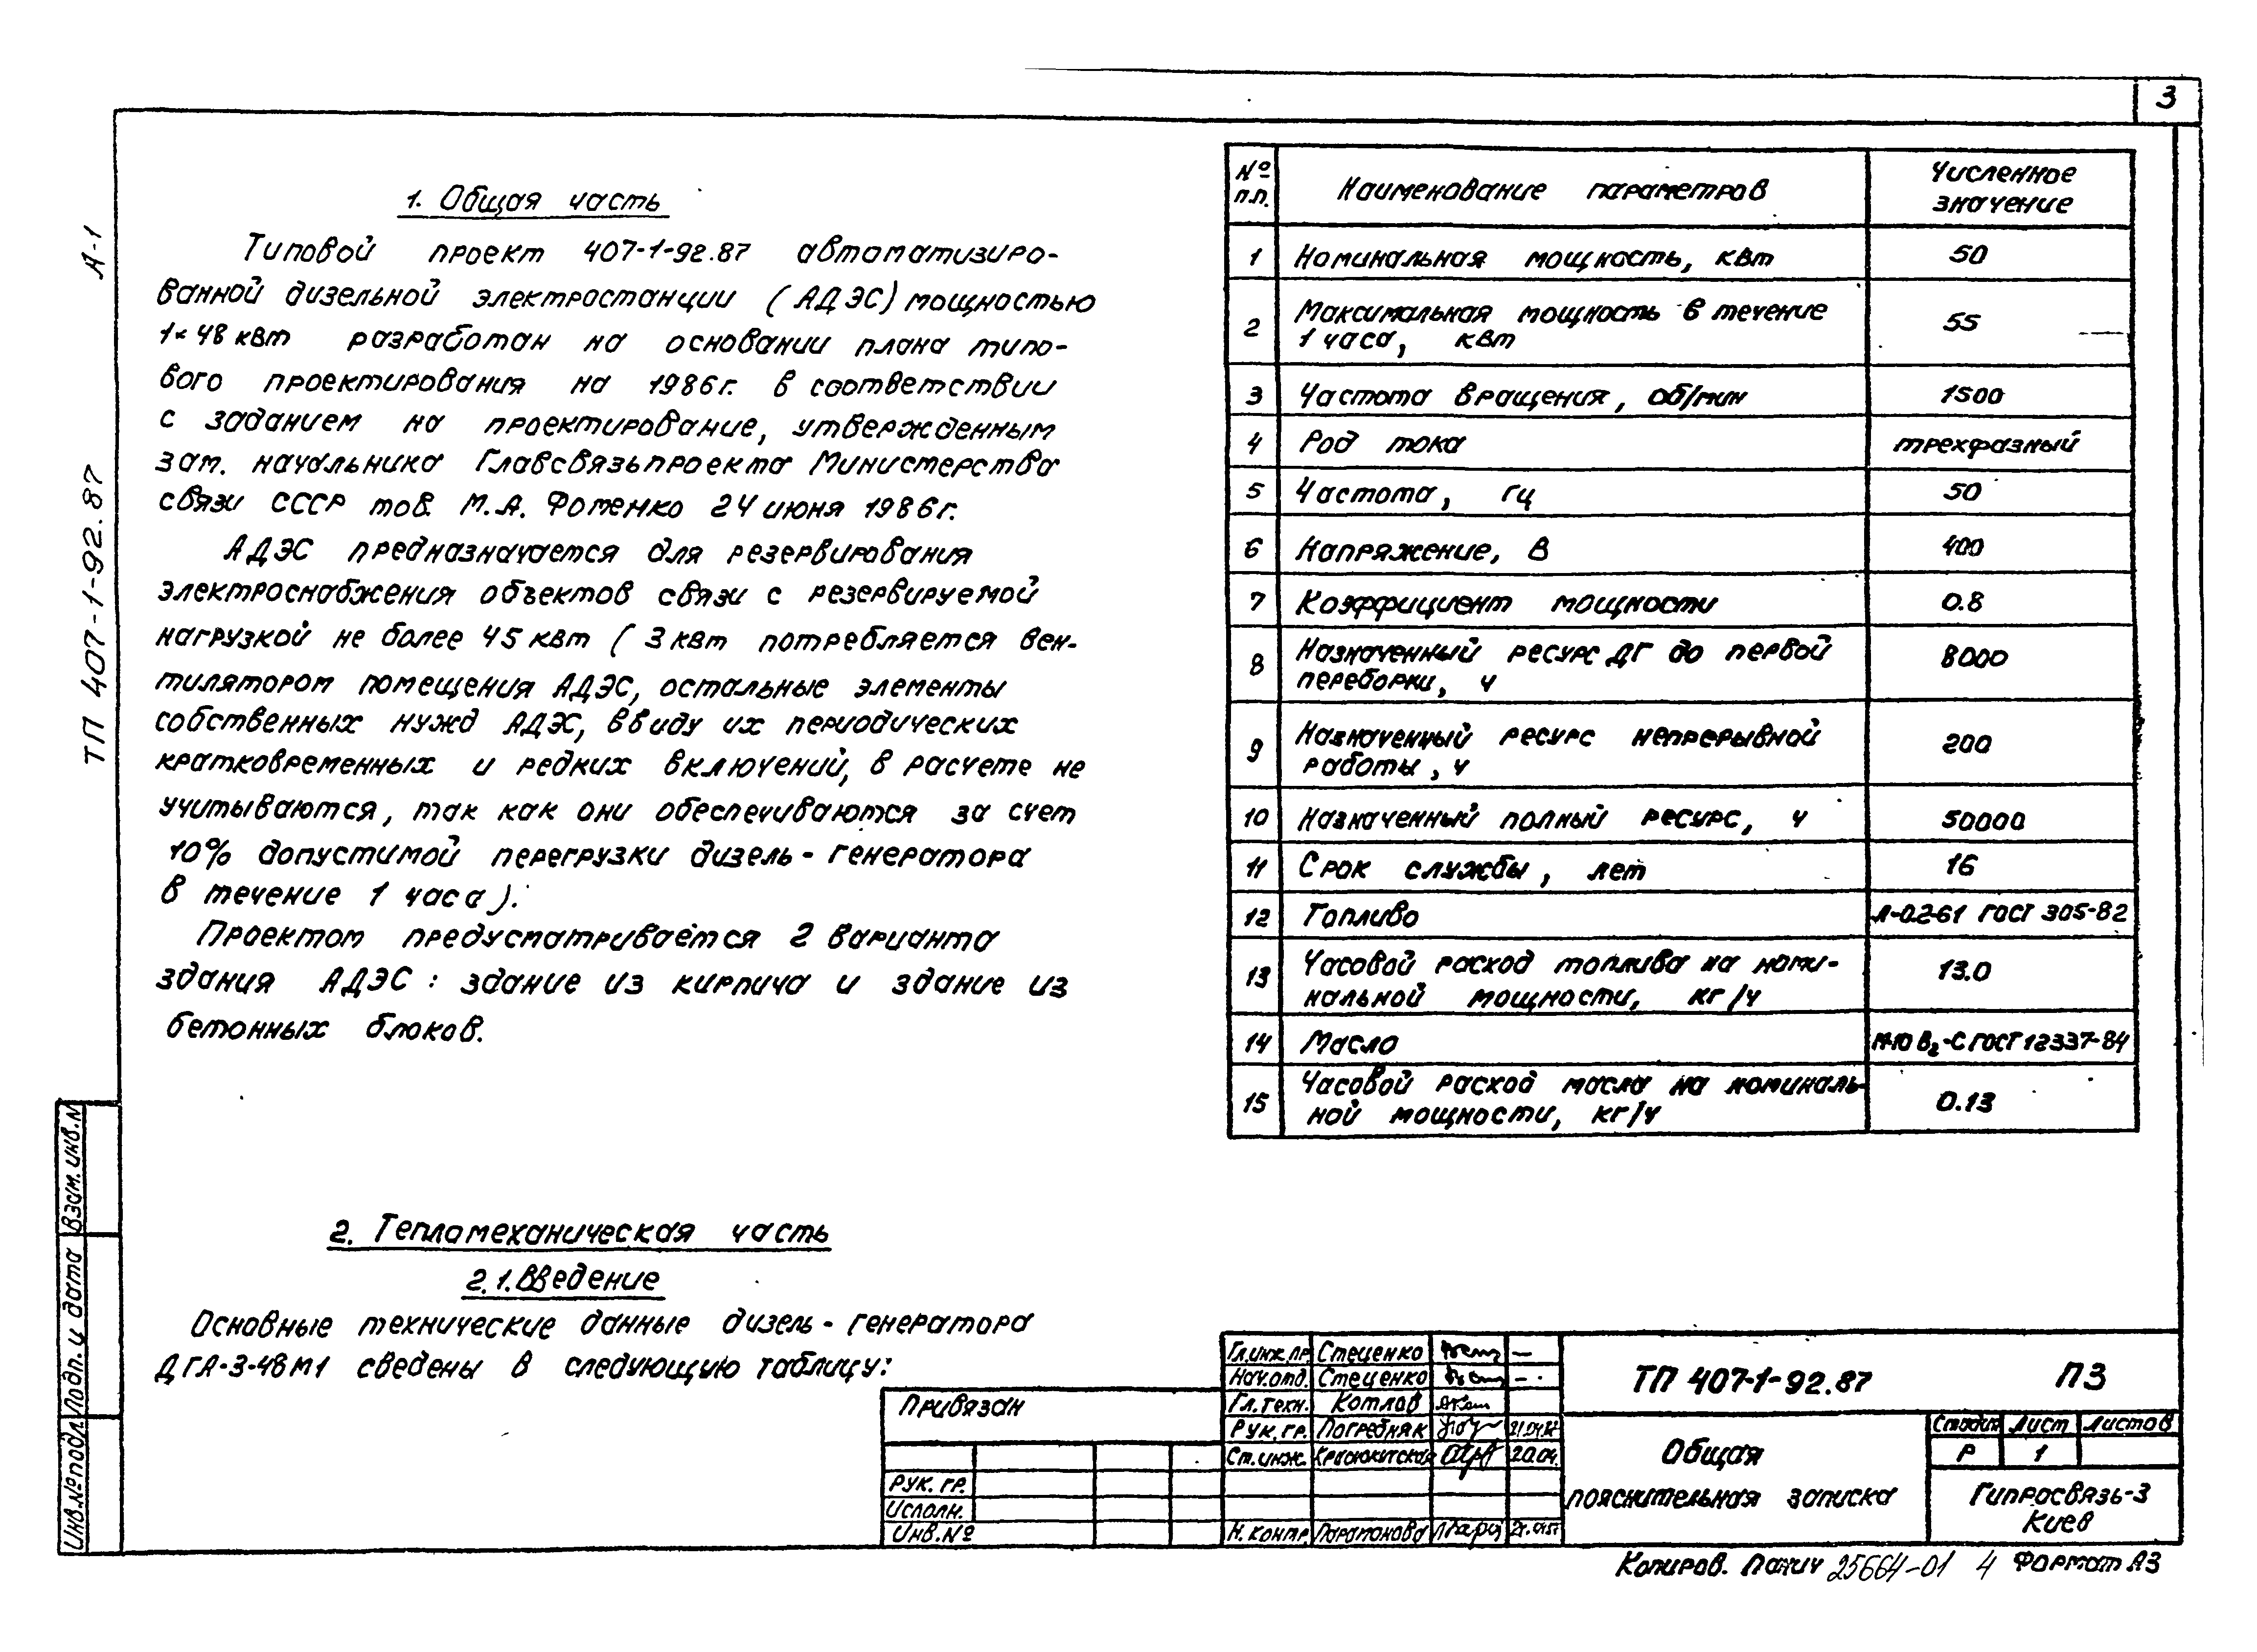 3
А-1
ТП 407-1-92.87
1. Общая часть
Типовой проект 407-1-92.87 автоматизиро-
ванной дизельной электростанции (АДЭС) мощностью
1×48 квт разработан на основании плана типо-
вого проектирования на 1986г. в соответствии
с заданием на проектирование, утвержденным
зам. начальника Главсвязьпроекта Министерства
связи СССР тов. М.А. Фоменко 24 июня 1986г.
АДЭС предназначается для резервирования
электроснабжения объектов связи с резервируемой
нагрузкой не более 45 квт ( 3 квт потребляется вен-
тилятором помещения АДЭС, остальные элементы
собственных нужд АДЭС, ввиду их периодических
кратковременных и редких включений, в расчете не
учитываются, так как они обеспечиваются за счет
10% допустимой перегрузки дизель-генератора
в течение 1 часа).
Проектом предусматривается 2 варианта
здания АДЭС: здание из кирпича и здание из
бетонных блоков.
2. Тепломеханическая часть
2.1. Введение
Основные технические данные дизель-генератора
ДГА-3-48М1 сведены в следующую таблицу:
№ п.п. Наименование параметров Численное значение
1 Номинальная мощность, квт 50
2 Максимальная мощность в течение 1 часа, квт 55
3 Частота вращения, об/мин 1500
4 Род тока трехфазный
5 Частота, гц 50
6 Напряжение, В 400
7 Коэффициент мощности 0.8
8 Назначенный ресурс ДГ до первой переборки, ч 8000
9 Назначенный ресурс непрерывной работы, ч 200
10 Назначенный полный ресурс, ч 50000
11 Срок службы, лет 16
12 Топливо Л-0.2-61 ГОСТ 305-82
13 Часовой расход топлива на номи-
нальной мощности, кг/ч 13.0
14 Масло М-10 В2-С ГОСТ 12337-84
15 Часовой расход масла на номиналь-
ной мощности, кг/ч 0.13
Взам. инв. N
Подп. и дата
Инв. № подл.
Привязан
Рук. гр.
Исполн.
Инв. №
Гл. инж. пр. Стеценко
Нач. отд. Стеценко
Гл. техн. Котлов
Рук. гр. Погребняк
Ст. инж. 20.04.
Н. контр.
ТП 407-1-92.87 ПЗ
Общая
пояснительная записка
Стадия Лист Листов
Р 1
Гипросвязь-3
Киев
Копиров. Панич 25664-01 4 Формат А3